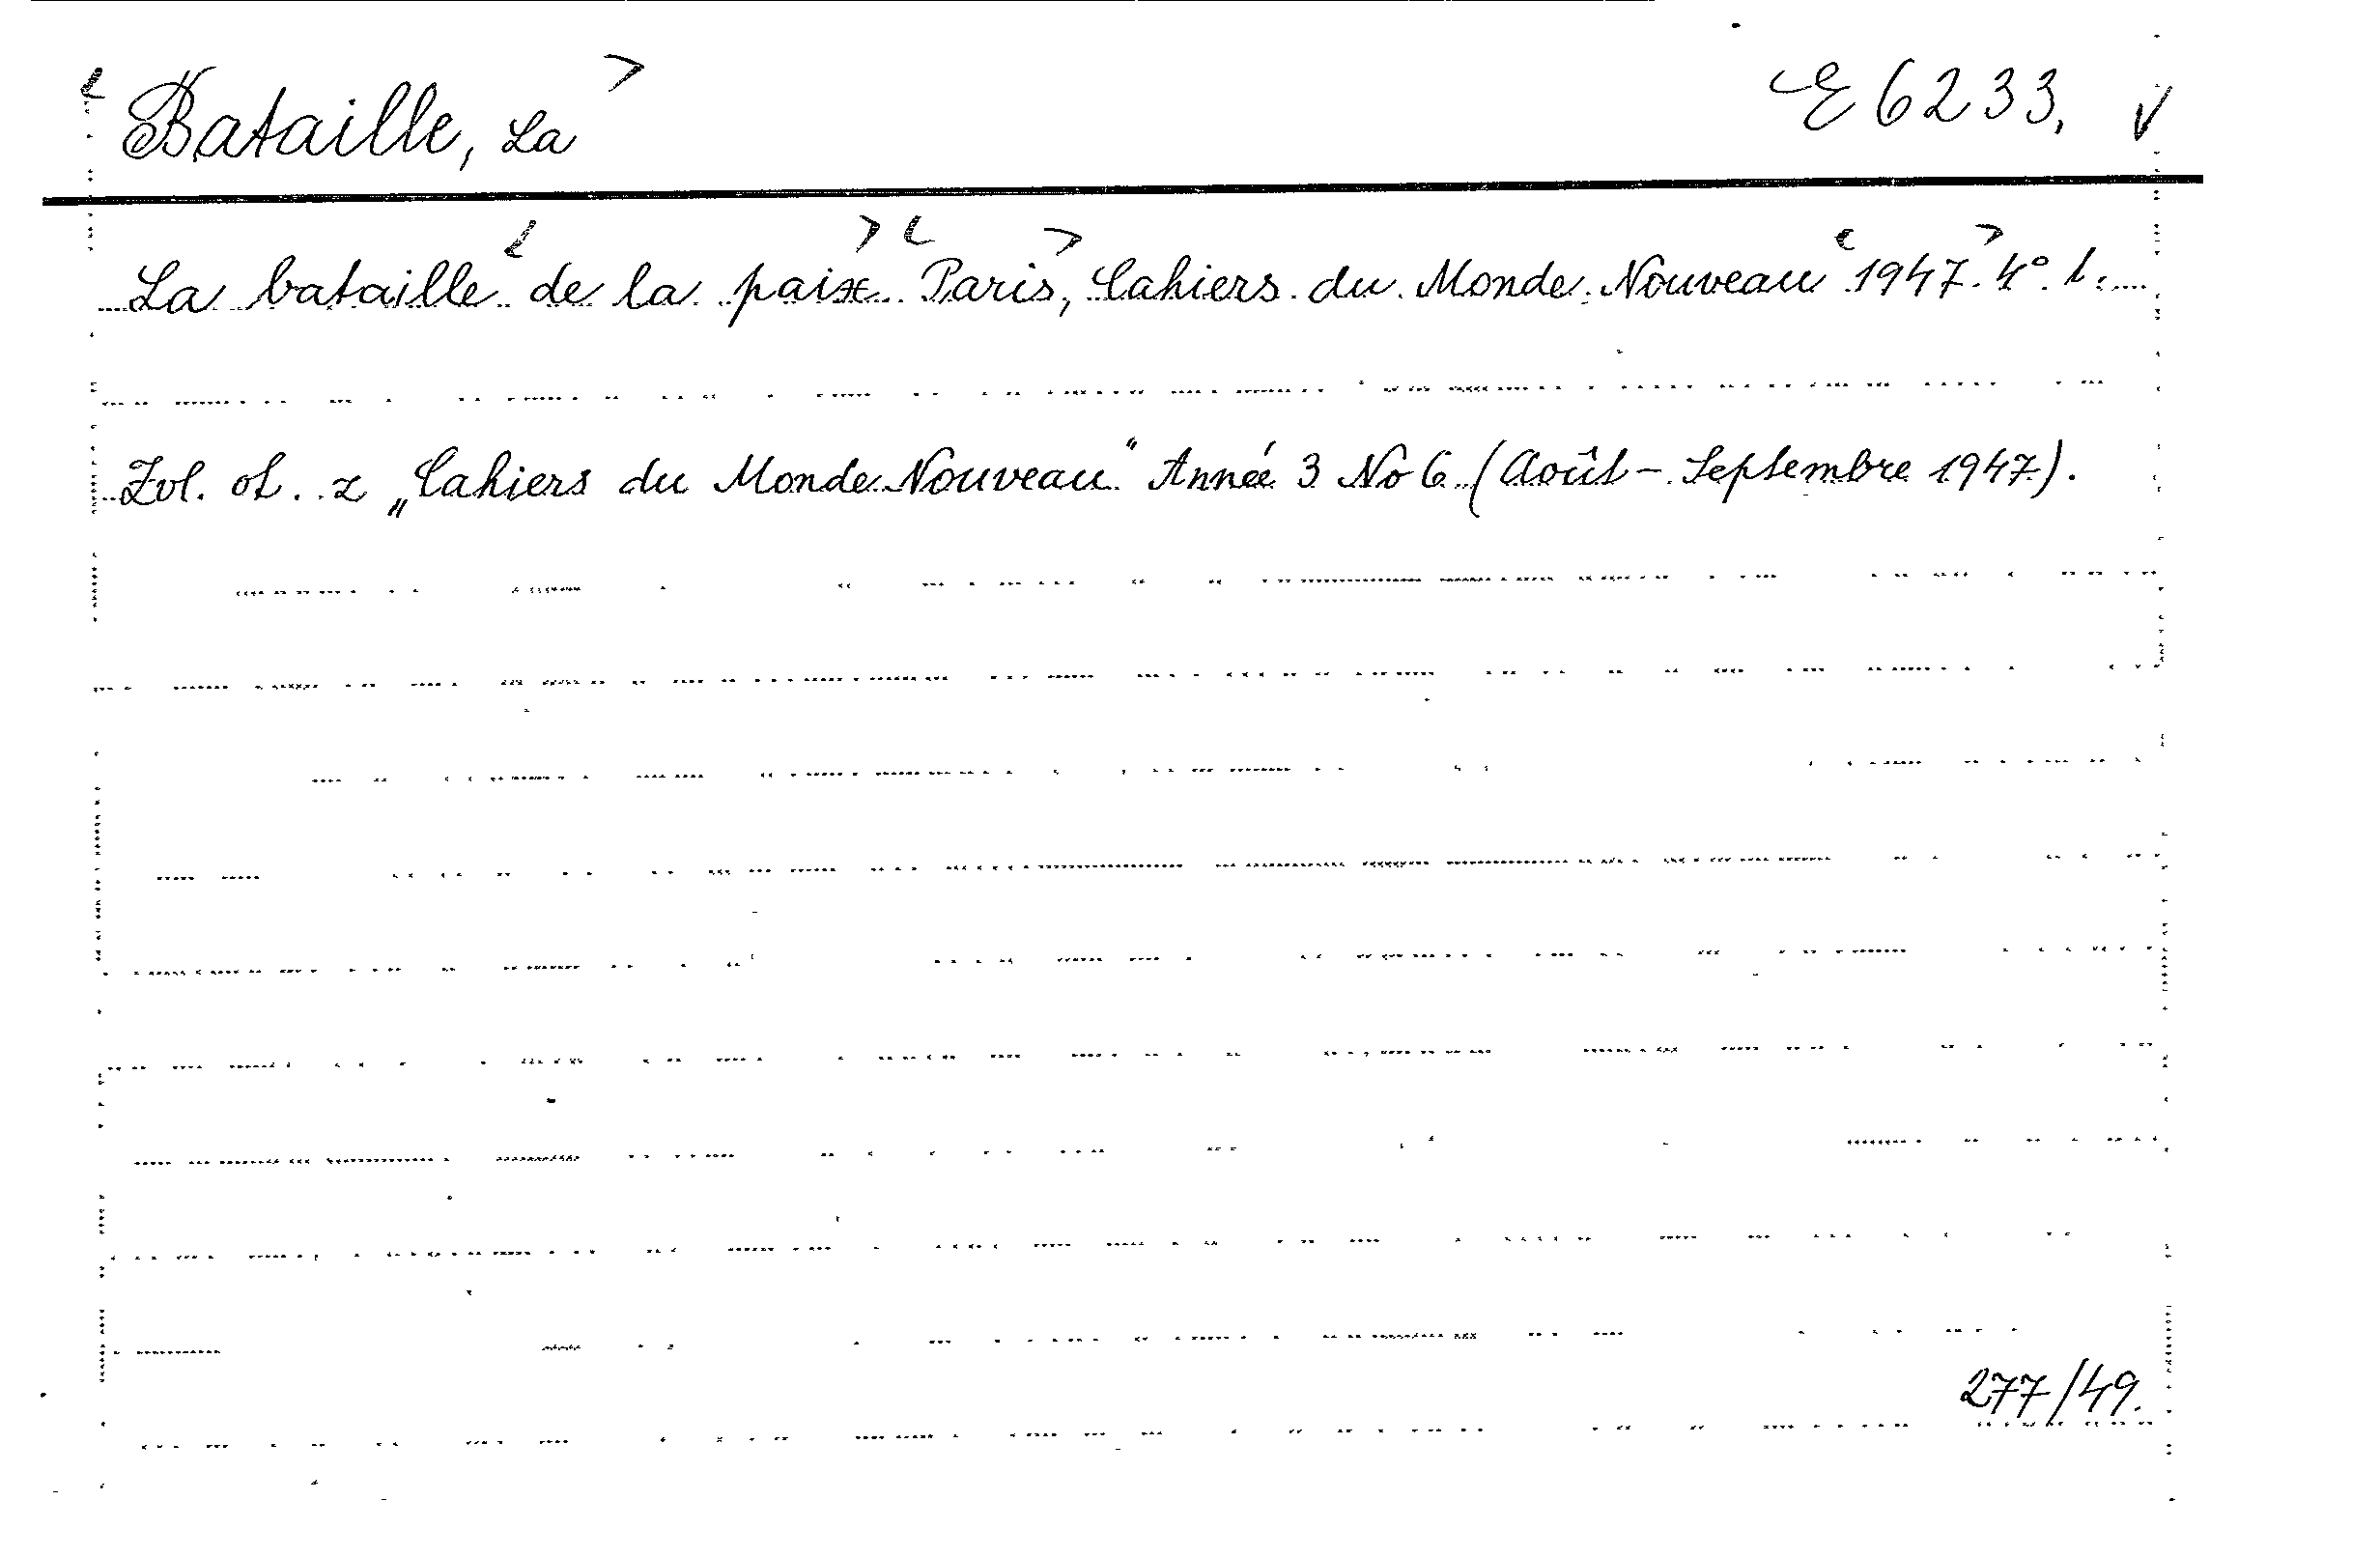 Bataille, La E 6233.
La bataille de la paix Paris, Cahiers du Monde Nouveau 1947. 4°. l.
Zvl. ot. z „Cahiers du Monde Nouveau" Année 3 No 6 (Août - Septembre 1947).
277/49.